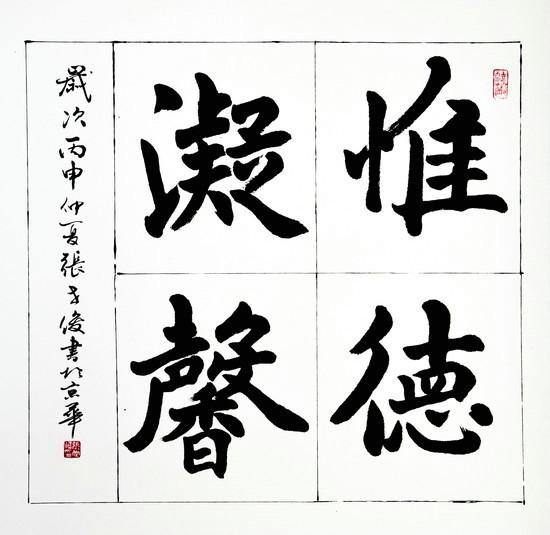 惟德
凝馨
歲次丙申仲夏張子俊書於京華